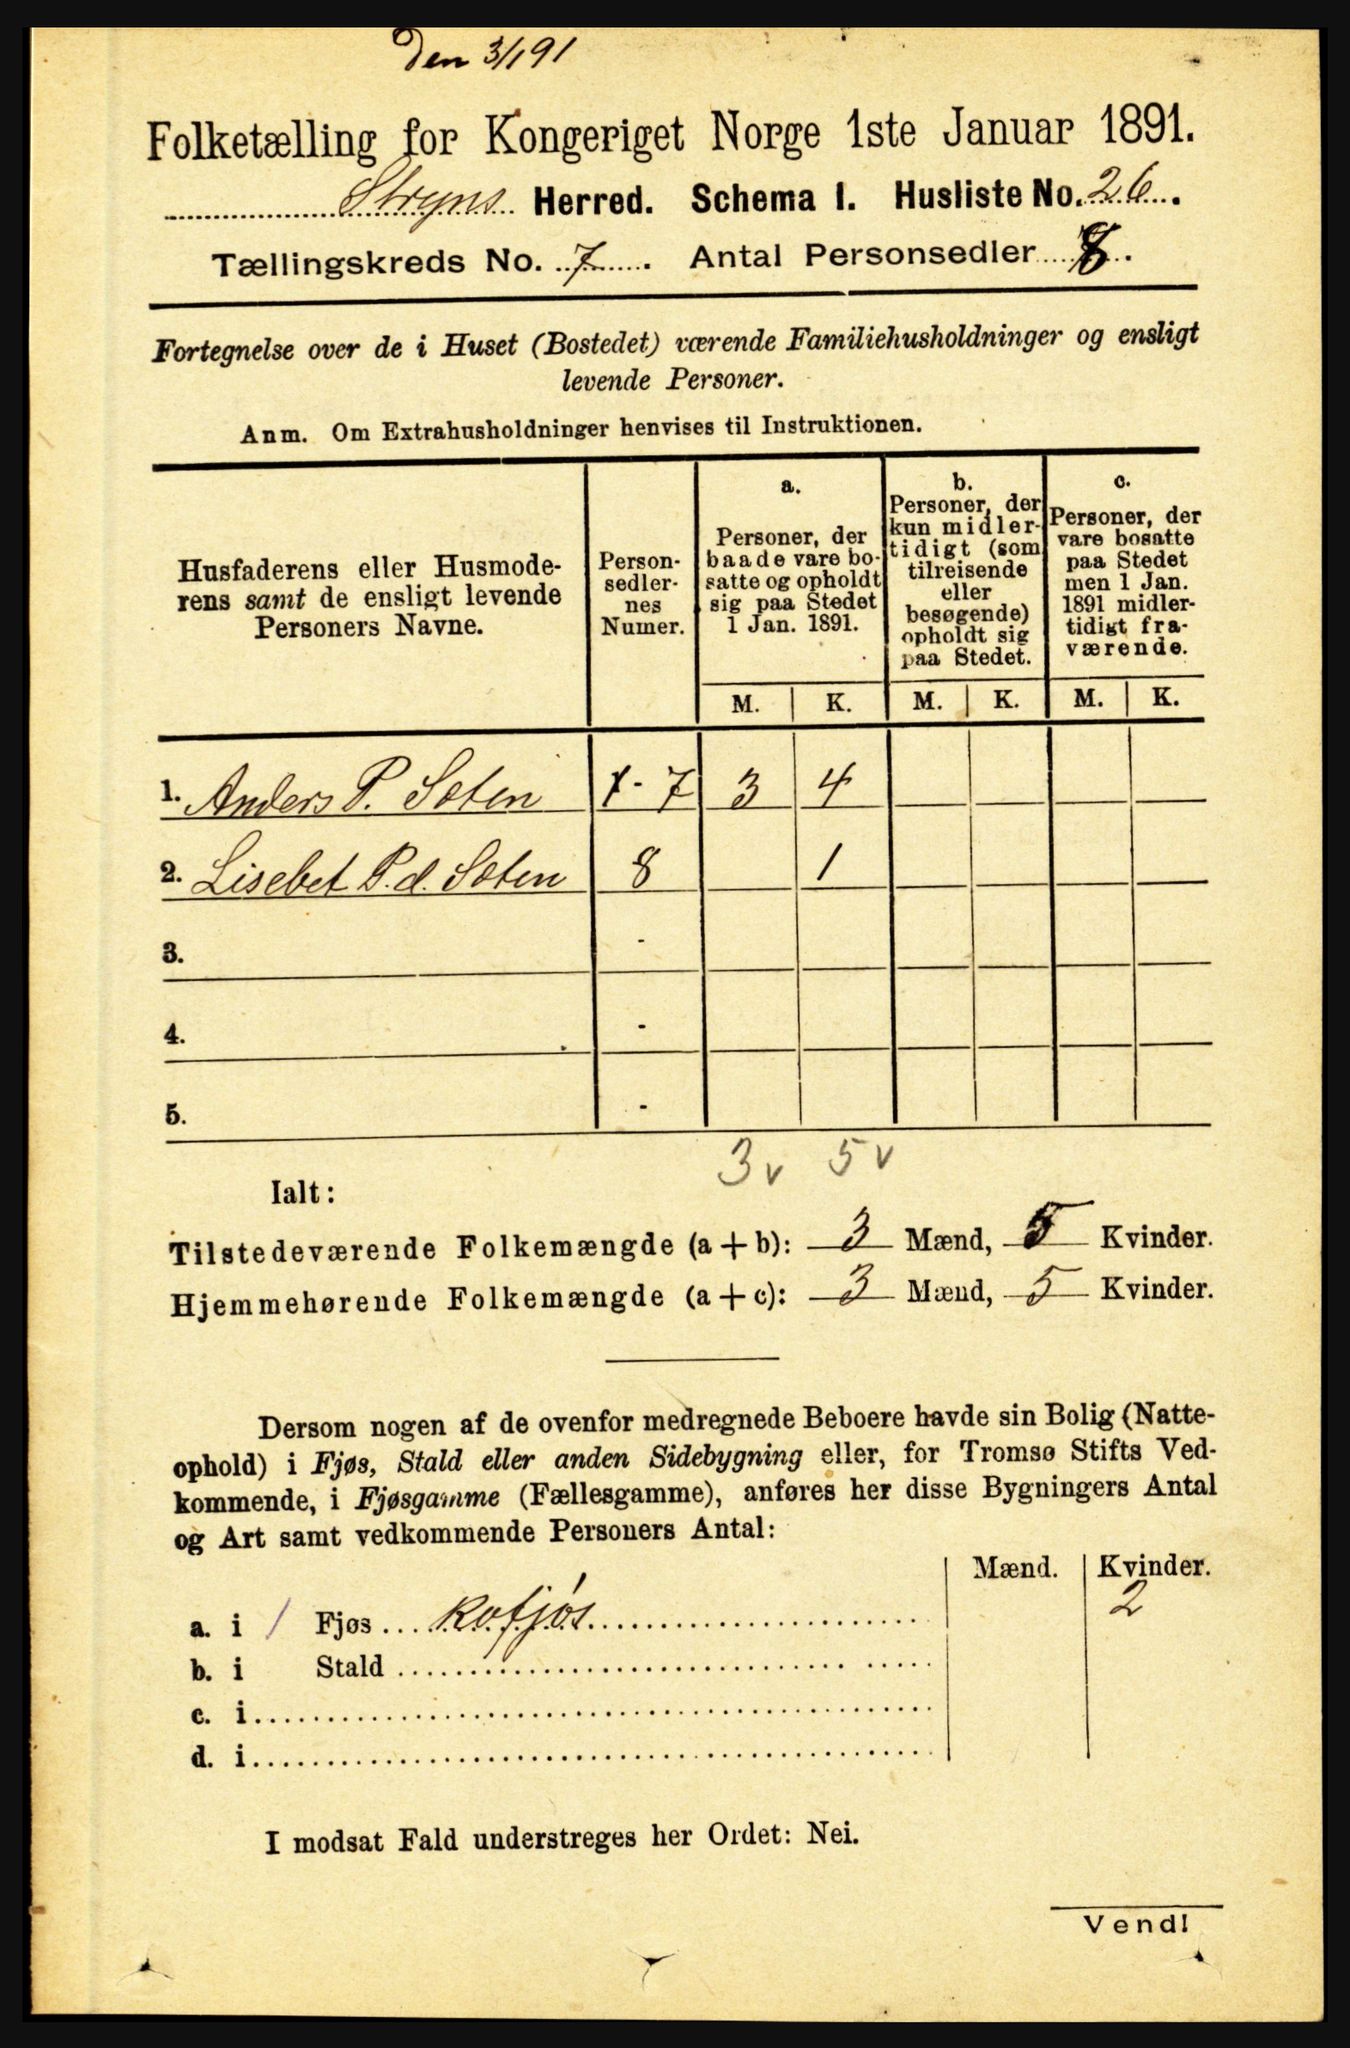 Den 3/1 91
Folketælling for Kongeriget Norge 1ste Januar 1891.
Stryns Herred. Schema I. Husliste No. 26.
Tællingskreds No. 7. Antal Personsedler 8.
Fortegnelse over de i Huset (Bostedet) værende Familiehusholdninger og ensligt
levende Personer.
Anm. Om Extrahusholdninger henvises til Instruktionen.
Husfaderens eller Husmode-
rens samt de ensligt levende
Personers Navne.
Person-
sedler-
nes
Numer.
a.
Personer, der
baade vare bo-
satte og opholdt
sig paa Stedet
1 Jan. 1891.
b.
Personer, der
kun midler-
tidigt (som
tilreisende
eller
besøgende)
opholdt sig
paa Stedet.
c.
Personer, der
vare bosatte
paa Stedet
men 1 Jan.
1891 midler-
tidigt fra-
værende.
M. K. M. K. M. K.
1. Anders P. Sæten 1-7 3 4
2. Lisebet P.d. Sæten 8 1
3. -
4. -
5. -
3 v 5 v
Ialt:
Tilstedeværende Folkemængde (a + b): 3 Mænd, 5 Kvinder.
Hjemmehørende Folkemængde (a + c): 3 Mænd, 5 Kvinder.
Dersom nogen af de ovenfor medregnede Beboere havde sin Bolig (Natte-
ophold) i Fjøs, Stald eller anden Sidebygning eller, for Tromsø Stifts Ved-
kommende, i Fjøsgamme (Fællesgamme), anføres her disse Bygningers Antal
og Art samt vedkommende Personers Antal:
Mænd. Kvinder.
a. i 1 Fjøs ... Kofjøs 2
b. i Stald
c. i
d. i
I modsat Fald understreges her Ordet: Nei.
Vend!